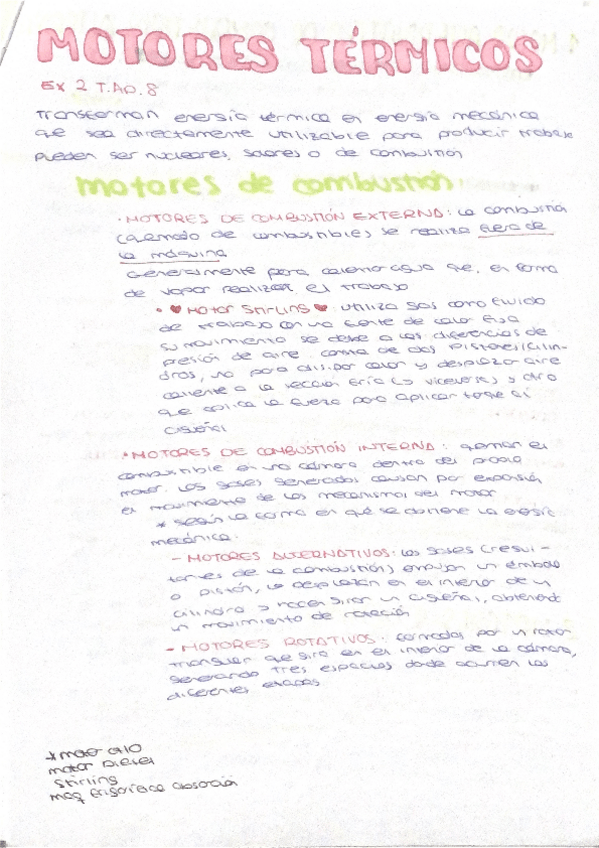 MOTORES TÉRMICOS
EX 2 T.AD.8
Transforman energía térmica en energía mecánica
que sea directamente utilizable para producir trabajo
pueden ser nucleares, solares o de combustión
motores de combustión
· MOTORES DE COMBUSTIÓN EXTERNA: la combustión
(quemado de combustibles) se realiza fuera de
la máquina
Generalmente para calentar agua que, en forma
de vapor realizará el trabajo
· ♥ MOTOR STIRLING ♥ utiliza gas como fluido
de trabajo con una fuente de calor fija
su movimiento se debe a las diferencias de
presión de aire. consta de dos pistones (cilin-
dros), uno para disipar calor y desplazar aire
caliente a la sección fría (y viceversa) y otro
que aplica la fuerza para aplicar torque al
cigüeñal
· MOTORES DE COMBUSTIÓN INTERNA: queman el
combustible en una cámara dentro del propio
motor. los gases generados causan por expansión
el movimiento de los mecanismos del motor
* según la forma en que se obtiene la energía
mecánica:
- MOTORES ALTERNATIVOS: los gases (resul-
tantes de la combustión) empujan un émbolo
o pistón, lo desplazan en el interior de un
cilindro y hacen girar un cigüeñal, obteniendo
un movimiento de rotación
- MOTORES ROTATIVOS: formados por un rotor
triangular que gira en el interior de la cámara,
generando tres espacios donde ocurren las
diferentes etapas
* motor OTTO
motor Diesel
Stirling
maq frigorífica absorción